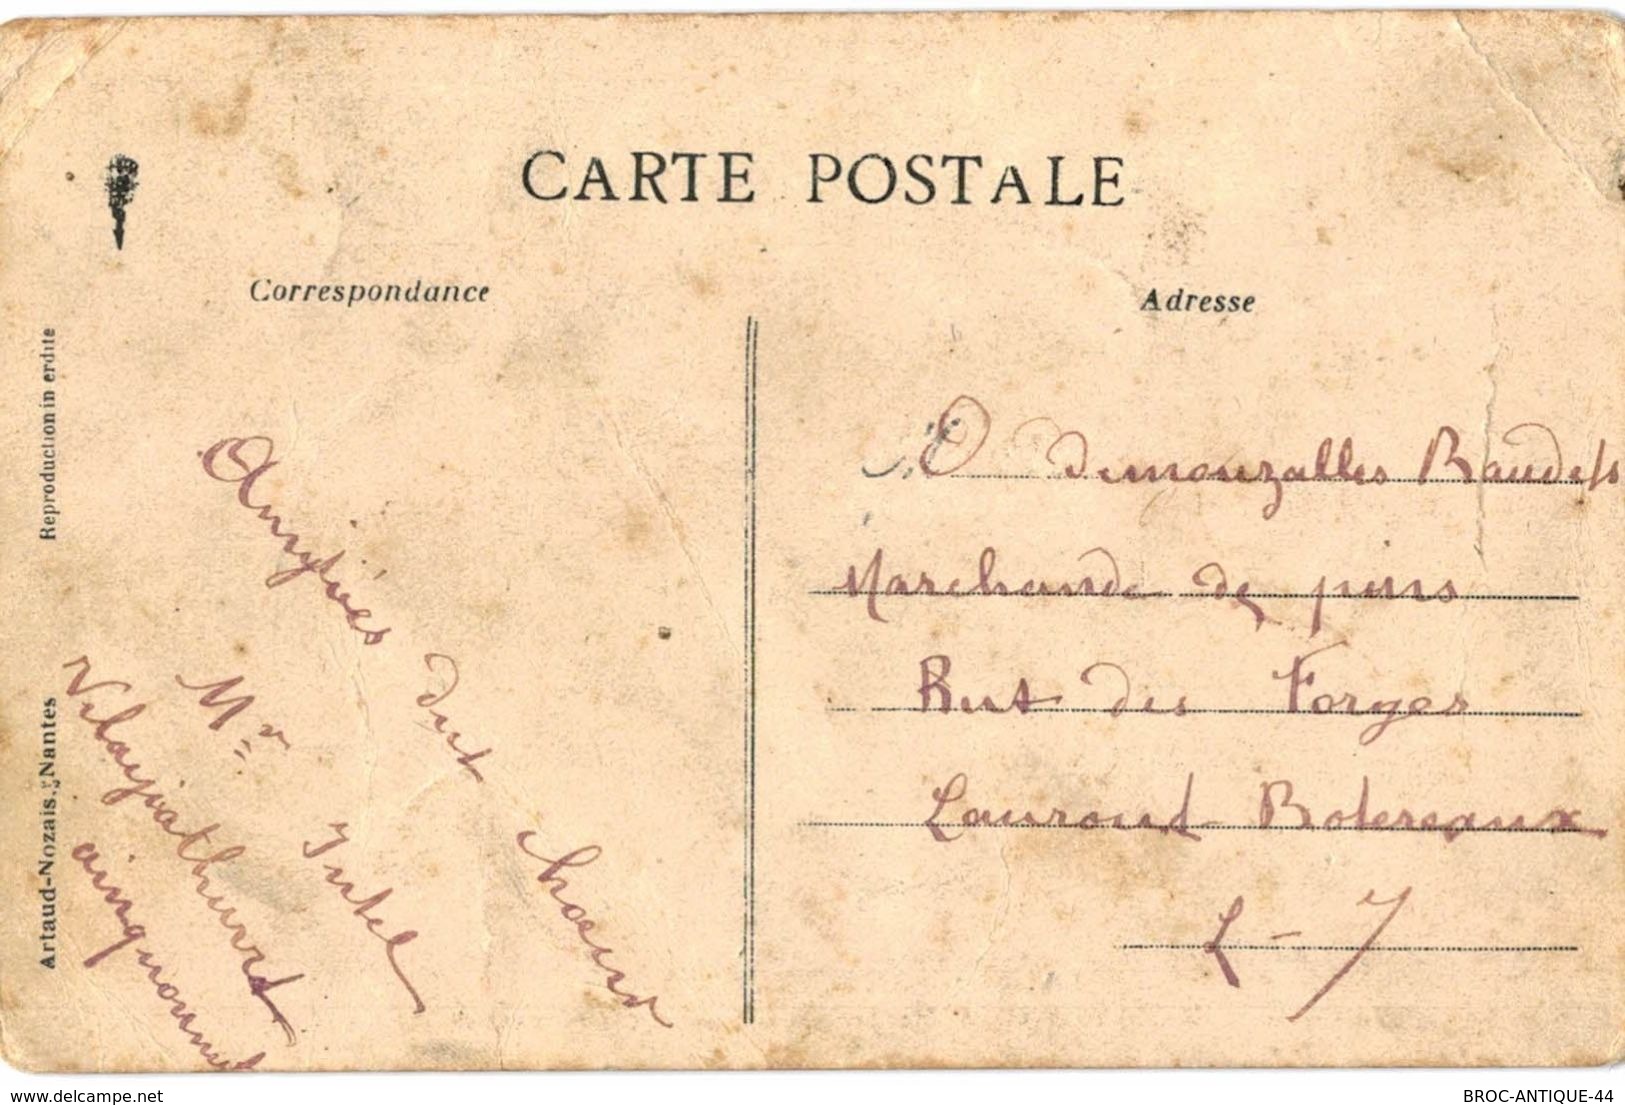 CARTE POSTALE
Correspondance
Adresse
Reproduction interdite
Artaud-Nozais., Nantes
Amytiées dut choeur
Mr Jutel
ainquonnut
O Demouzalles Baudets
Marchande de
Rut des Forges
Lauroud Botereaux
L-J
delcampe.net
BROC-ANTIQUE-44